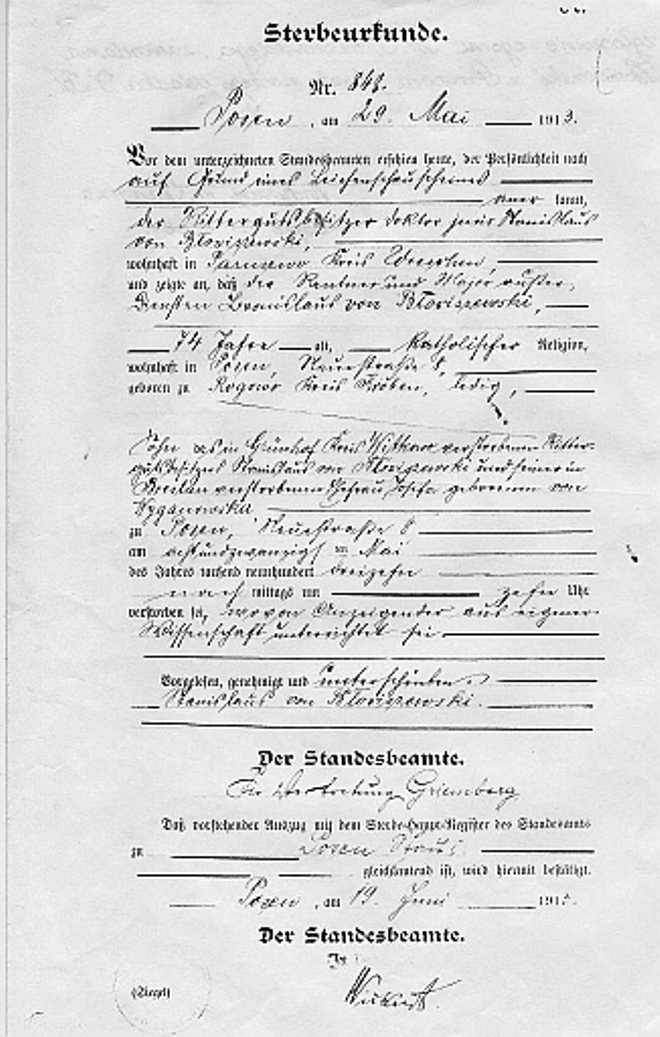 Sterbeurkunde.
Nr. 848.
Posen, am 29. Mai 1913.
Vor dem unterzeichneten Standesbeamten erschien heute, der Persönlichkeit nach
auf Grund eines Leichenschauscheines
aner kannt,
der Rittergutsbesitzer doktor juris Stanislaus
von
wohnhaft in Kreis
und zeigte an, daß der Rentner und Major außer
Diensten Bronislaus von
74 Jahre alt, Katholischer Religion,
wohnhaft in Posen, Neuestraße 8,
geboren zu Rogowo Kreis Kröben, ledig,
Sohn des in Grünhof Kreis Witkowo verstorbenen Ritter-
gutsbesitzers Stanislaus von und seiner in
Breslau verstorbenen Ehefrau Josefa geborenen von
zu Posen, Neuestraße 8
am achtundzwanzigsten Mai
des Jahres tausend neunhundert dreizehn
nach mittags um zehn Uhr
verstorben sei, wovon Anzeigender aus eigener
Wissenschaft unterrichtet sei
Vorgelesen, genehmigt und unterschrieben
Stanislaus von
Der Standesbeamte.
In Vertretung
Daß vorstehender Auszug mit dem Sterbe-Haupt-Register des Standesamts
zu Posen
gleichlautend ist, wird hiermit bestätigt.
Posen, am 19. Juni 191
Der Standesbeamte.
(Siegel)